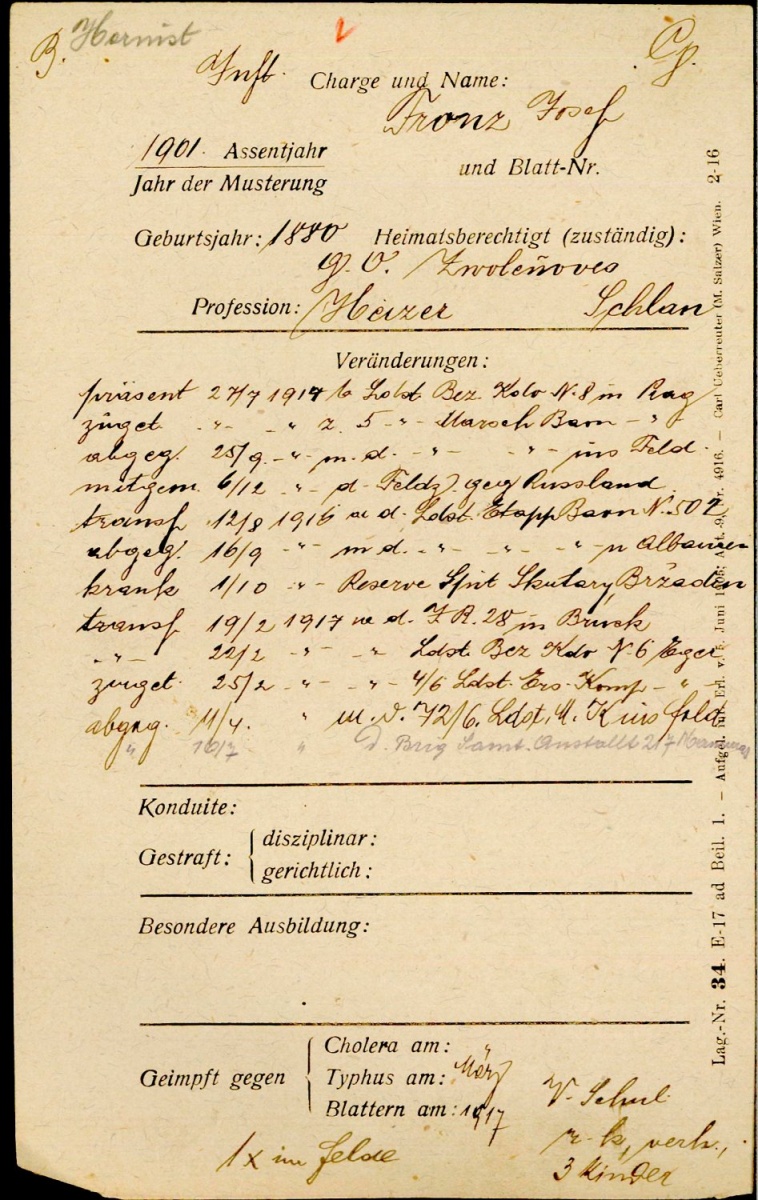 B. Hornist
Inft. Charge und Name: Cz.
Franz Josef
1901. Assentjahr
Jahr der Musterung
und Blatt-Nr.
Geburtsjahr: 1880 Heimatsberechtigt (zuständig):
g. O. Zwolenoves
Profession: Heizer Schlan
Veränderungen:
präsent 27/7 1914 b Ldst. Bez. Kdo N. 8 in Prag
zuget. -"- -"- z. 5 -"- Marsch Baon -"-
abgeg. 25/9 -"- m. d. -"- -"- ins Feld.
mitgem. 6/12 -"- d. Feldz. geg. Russland
transf 12/8 1916 z. d. Ldst. Etapp Baon N. 502
abgeg. 16/9 -"- m d. -"- -"- -"- n Albanien
krank 1/10 -"- Reserve Spit Skutary
transf 19/2 1917 z. d. I. R. 28 in Bruck
-"- 22/2 -"- -"- Ldst. Bez Kdo N. 6 Eger
zuget 25/2 -"- -"- 4/6 Ldst. Ers. Komp -"-
abgeg. 11/4. " m. d. 72/6. Ldst. M. K ins feld
" 16/7 " d. Brig Samt. Anstallt 217
Konduite:
Gestraft: disziplinar:
gerichtlich:
Besondere Ausbildung:
Geimpft gegen
Cholera am: "
Typhus am: März
Blattern am: 1917
V. Schul
r. k., verh.,
3 Kinder
1x im felde
Lag.-Nr. 34. E-17 ad Beil. 1. — Aufgel. mit Erl. v. 5. Juni Abt. 9, Nr. 4916. — Carl Ueberreuter (M. Salzer) Wien. 2-16